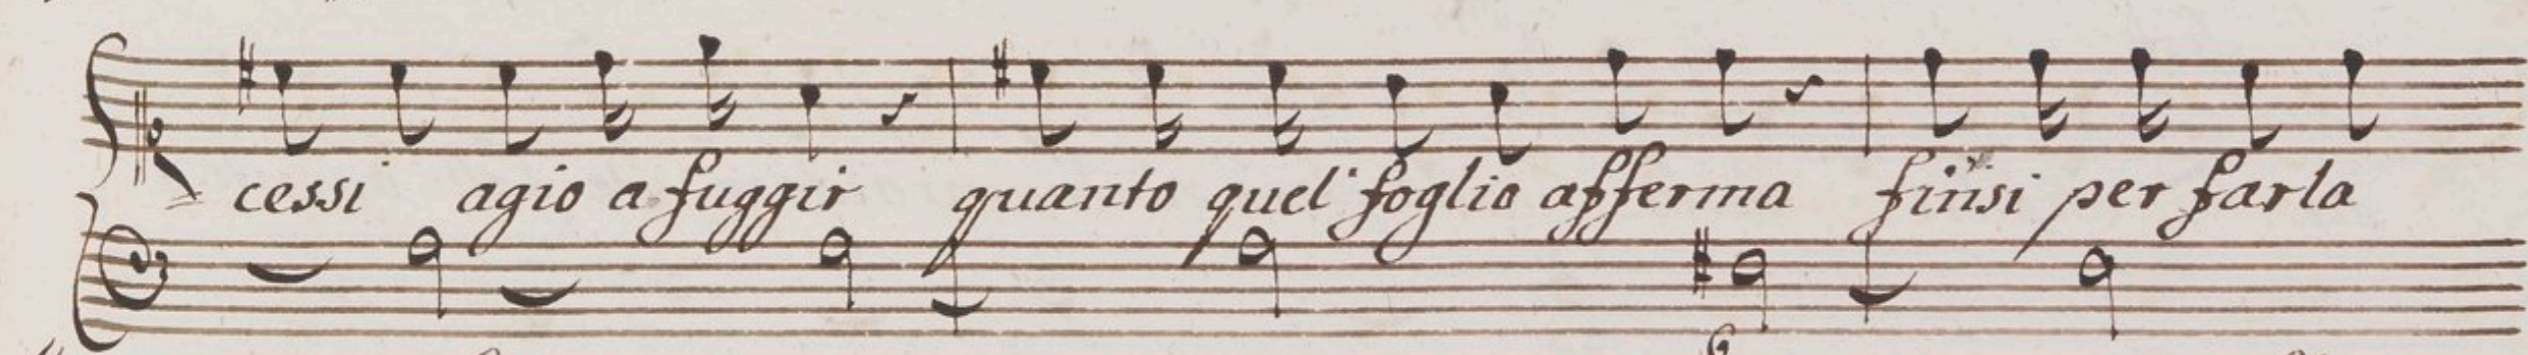 cessi agio a fuggir quanto quel foglio afferma finsi per farla
6